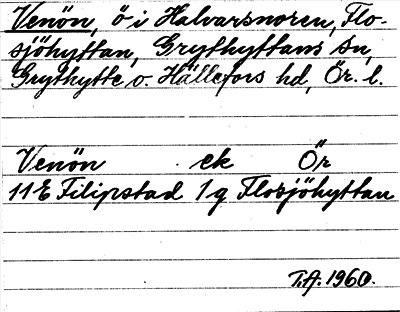 Venön, ö i Halvarsnoren, Flo-
sjöhyttan, Grythyttans sn,
Grythytte o. Hällefors hd, Ör. l.
Venön ek Ör
11E Filipstad 1g Flosjöhyttan
T.A. 1960.